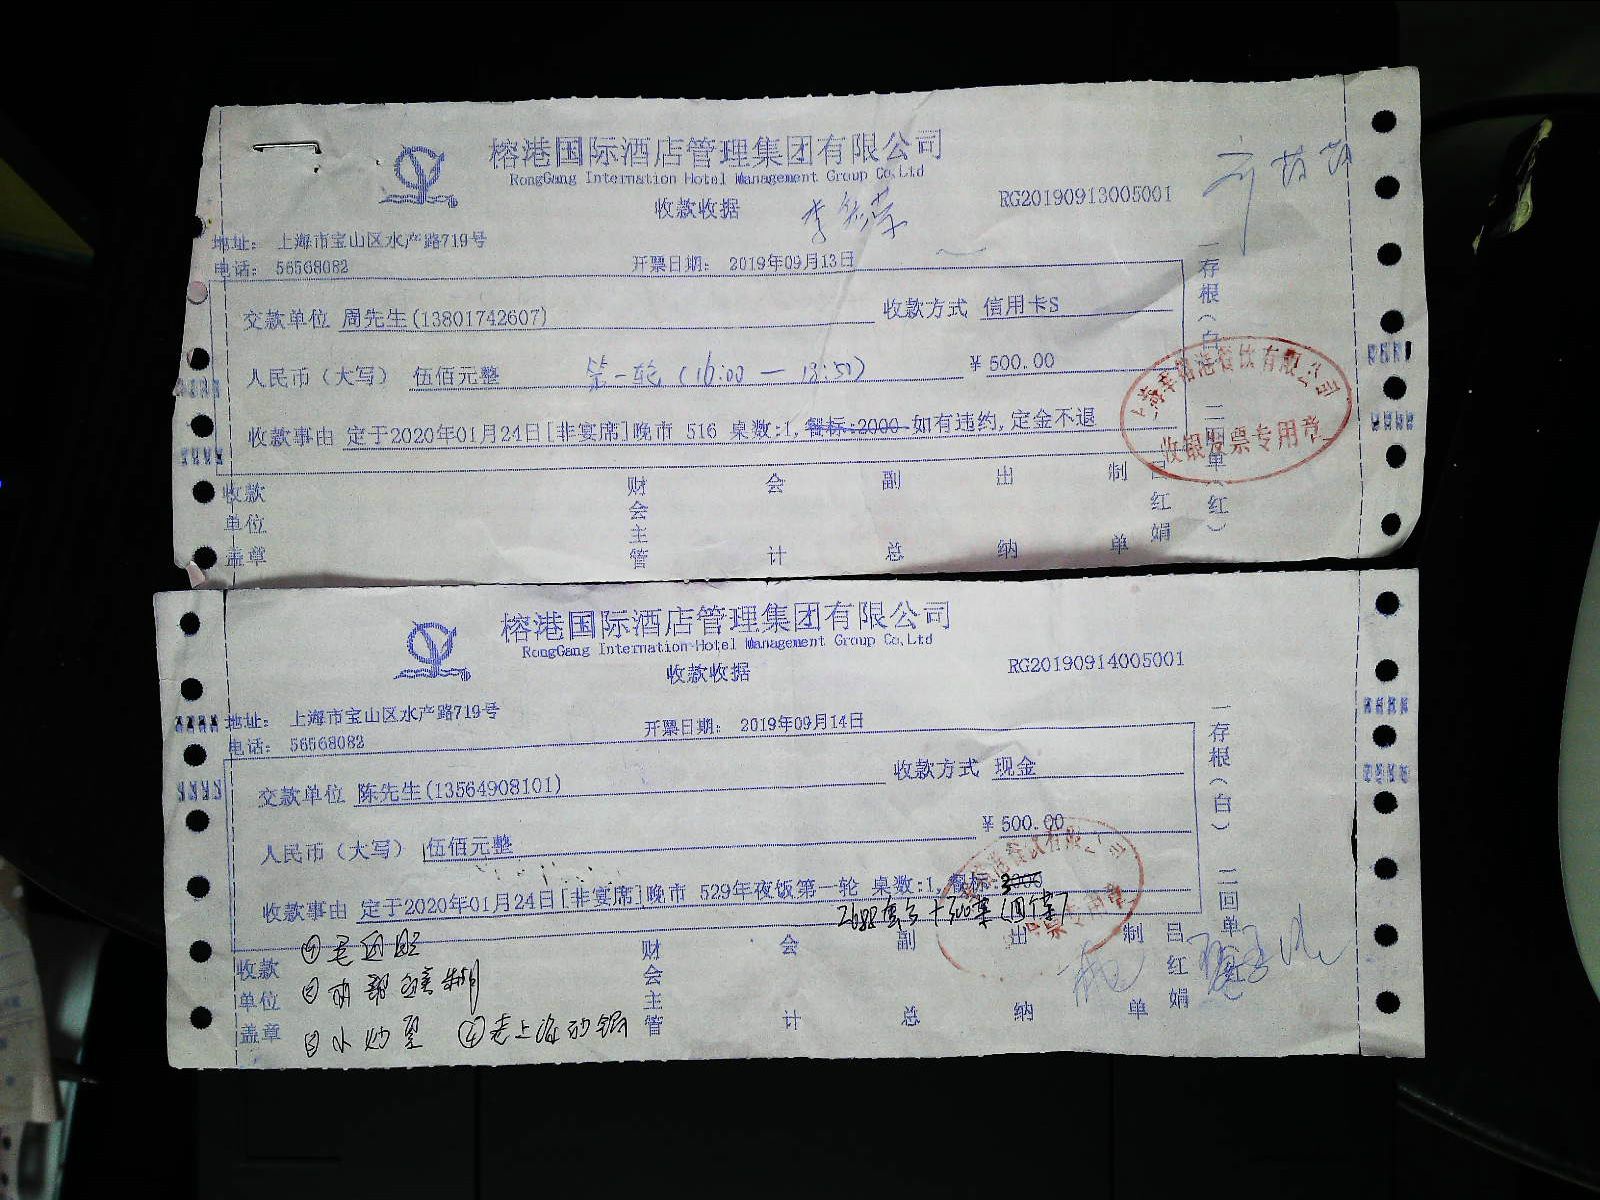 榕港国际酒店管理集团有限公司
RongGang Internation Hotel Management Group Co,Ltd
收款收据
RG20190913005001
地址： 上海市宝山区水产路719号
电话： 56568082
开票日期： 2019年09月13日
交款单位 周先生(13801742607)
收款方式 信用卡S
人民币（大写） 伍佰元整
第一轮
¥500.00
收款事由 定于2020年01月24日[非宴席]晚市 516 桌数:1,餐标:2000 如有违约,定金不退
收款单位盖章
财会主管
会计
副总
出纳
制单
吕红娟
一存根（白）
二回单（红）
餐饮有限公司
收银发票专用章
榕港国际酒店管理集团有限公司
RongGang Internation Hotel Management Group Co,Ltd
收款收据
RG20190914005001
地址： 上海市宝山区水产路719号
电话： 56568082
开票日期： 2019年09月14日
交款单位 陈先生(13564908101)
收款方式 现金
人民币（大写） 伍佰元整
¥500.00
收款事由 定于2020年01月24日[非宴席]晚市 529年夜饭第一轮 桌数:1,餐标:3000
收款单位盖章
财会主管
会计
副总
出纳
制单
吕红娟
④老上海
一存根（白）
二回单